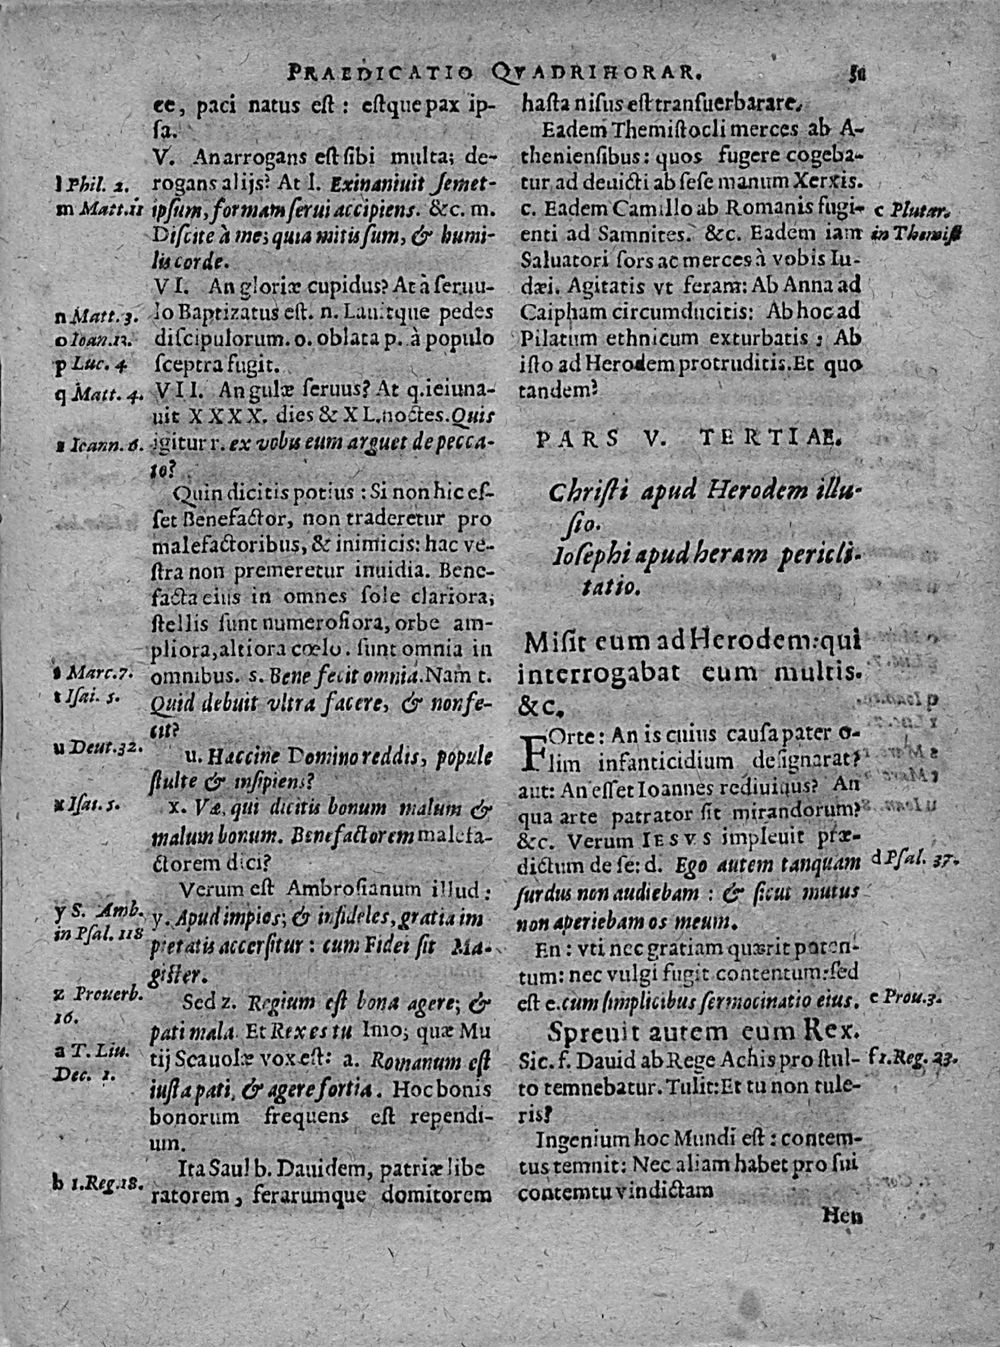 PRAEDICATIO QVADRIHORAR. 51
ee, paci natus est : estque pax ip-
sa.
V. An arrogans est sibi multa; de-
rogans alijs? At l. Exinaniuit semet-
ipsum, formam serui accipiens. &c. m.
Discite à me; quia mitis sum, & humi-
lis corde.
VI. An gloriæ cupidus? At à seruu-
lo Baptizatus est. n. Lauitque pedes
discipulorum. o. oblata p. à populo
sceptra fugit.
VII. An gulæ seruus? At q. ieiuna-
uit XXXX. dies & XL. noctes. Quis
igitur r. ex vobis eum arguet de pecca-
to?
Quin dicitis potius : Si non hic es-
set Benefactor, non traderetur pro
malefactoribus, & inimicis: hac ve-
stra non premeretur inuidia. Bene-
facta eius in omnes sole clariora;
stellis sunt numerosiora, orbe am-
pliora, altiora cœlo. sunt omnia in
omnibus. s. Bene fecit omnia. Nam t.
Quid debuit vltra facere, & non fe-
cit?
u. Haccine Domino reddis, popule
stulte & insipiens?
x. Væ, qui dicitis bonum malum &
malum bonum. Benefactorem malefa-
ctorem dici?
Verum est Ambrosianum illud :
y. Apud impios; & infideles, gratia im
pietatis accersitur : cum Fidei sit Ma-
gister.
Sed z. Regium est bona agere; &
pati mala. Et Rex es tu Imo; quæ Mu
tij Scauolæ vox est: a. Romanum est
iusta pati, & agere fortia. Hoc bonis
bonorum frequens est rependi-
um.
Ita Saul b. Dauidem, patriæ libe
ratorem, ferarumque domitorem
l Phil. 2.
m Matt. 11
n Matt. 3.
o Ioan. 13.
p Luc. 4
q Matt. 4.
Ioann. 6.
s Marc. 7.
t Isai. 5.
u Deut. 32.
x Isai. 5.
y S. Amb.
in Psal. 118
z Prouerb.
16.
a T. Liu.
Dec. 1.
b 1. Reg. 18.
hasta nisus est transuerbarare.
Eadem Themistocli merces ab A-
theniensibus : quos fugere cogeba-
tur ad deuicti ab sese manum Xerxis.
c. Eadem Camillo ab Romanis fugi-
enti ad Samnites. &c. Eadem iam
Saluatori sors ac merces à vobis Iu-
dæi. Agitatis vt feram: Ab Anna ad
Caipham circumducitis: Ab hoc ad
Pilatum ethnicum exturbatis : Ab
isto ad Herodem protruditis. Et quo
tandem?
PARS V. TERTIAE.
Christi apud Herodem illu-
sio.
Iosephi apud heram pericli-
tatio.
Misit eum ad Herodem: qui
interrogabat eum multis.
&c.
FOrte : An is cuius causa pater o-
lim infanticidium designarat?
aut: An esset Ioannes rediuiuus? An
qua arte patrator sit mirandorum?
&c. Verum IESVS impleuit præ-
dictum de se: d. Ego autem tanquam
surdus non audiebam : & sicut mutus
non aperiebam os meum.
En : vti nec gratiam quærit poten-
tum: nec vulgi fugit contentum: sed
est e. cum simplicibus sermocinatio eius.
Spreuit autem eum Rex.
Sic. f. Dauid ab Rege Achis pro stul-
to temnebatur. Tulit: Et tu non tule-
ris?
Ingenium hoc Mundi est : contem-
tus temnit: Nec aliam habet pro sui
contemtu vindictam
c Plutar.
in Themist
d Psal. 37.
e Prou. 3.
f 1. Reg. 23.
Hen